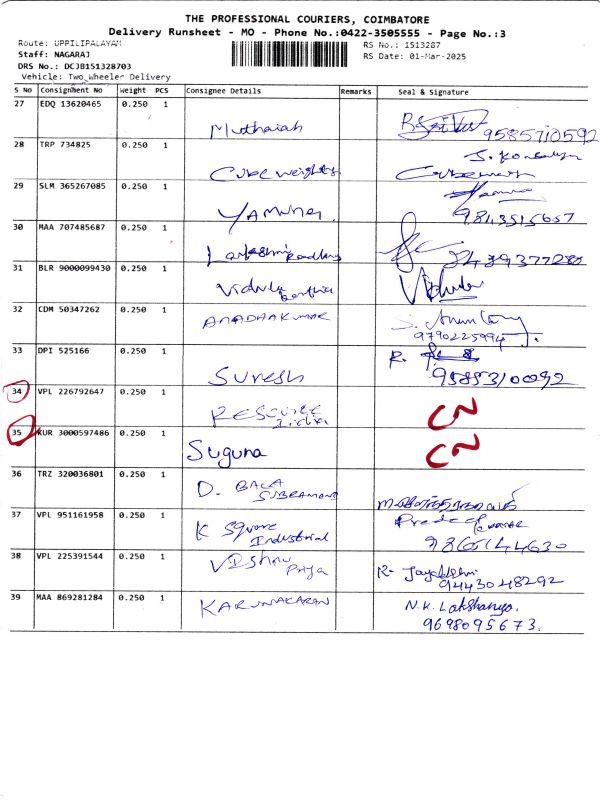 THE PROFESSIONAL COURIERS, COIMBATORE
Delivery Runsheet - MO - Phone No.:0422-3505555 - Page No.:3
Route: UPPILIPALAYAM
RS No.: 1513287
Staff: NAGARAJ
RS Date: 01-Mar-2025
DRS No.: DCJB151328703
Vehicle: Two Wheeler Delivery
S No Consignment No Weight PCS Consignee Details Remarks Seal & Signature
27 EDQ 13620465 0.250 1
Muthaiah 9585710592
28 TRP 734825 0.250 1
Cube weights
29 SLM 365267085 0.250 1
Yamuna 9843515657
30 MAA 707485687 0.250 1
Lakshmi
31 BLR 9000099430 0.250 1
Vidula
32 CDM 50347262 0.250 1
ANADHAKUMAR
9790225994
33 DPI 525166 0.250 1 R.
Suresh 9585310092
34 VPL 226792647 0.250 1
CN
35 KUR 3000597486 0.250 1
Suguna CN
36 TRZ 320036801 0.250 1
D. BALA
SUBRAMANI
37 VPL 951161958 0.250 1
K Square
Industrial 9865144630
38 VPL 225391544 0.250 1
VISHNU
Priya 9443048292
39 MAA 869281284 0.250 1
KARUNAKARAN N.K. Lakshanya.
9698095673.